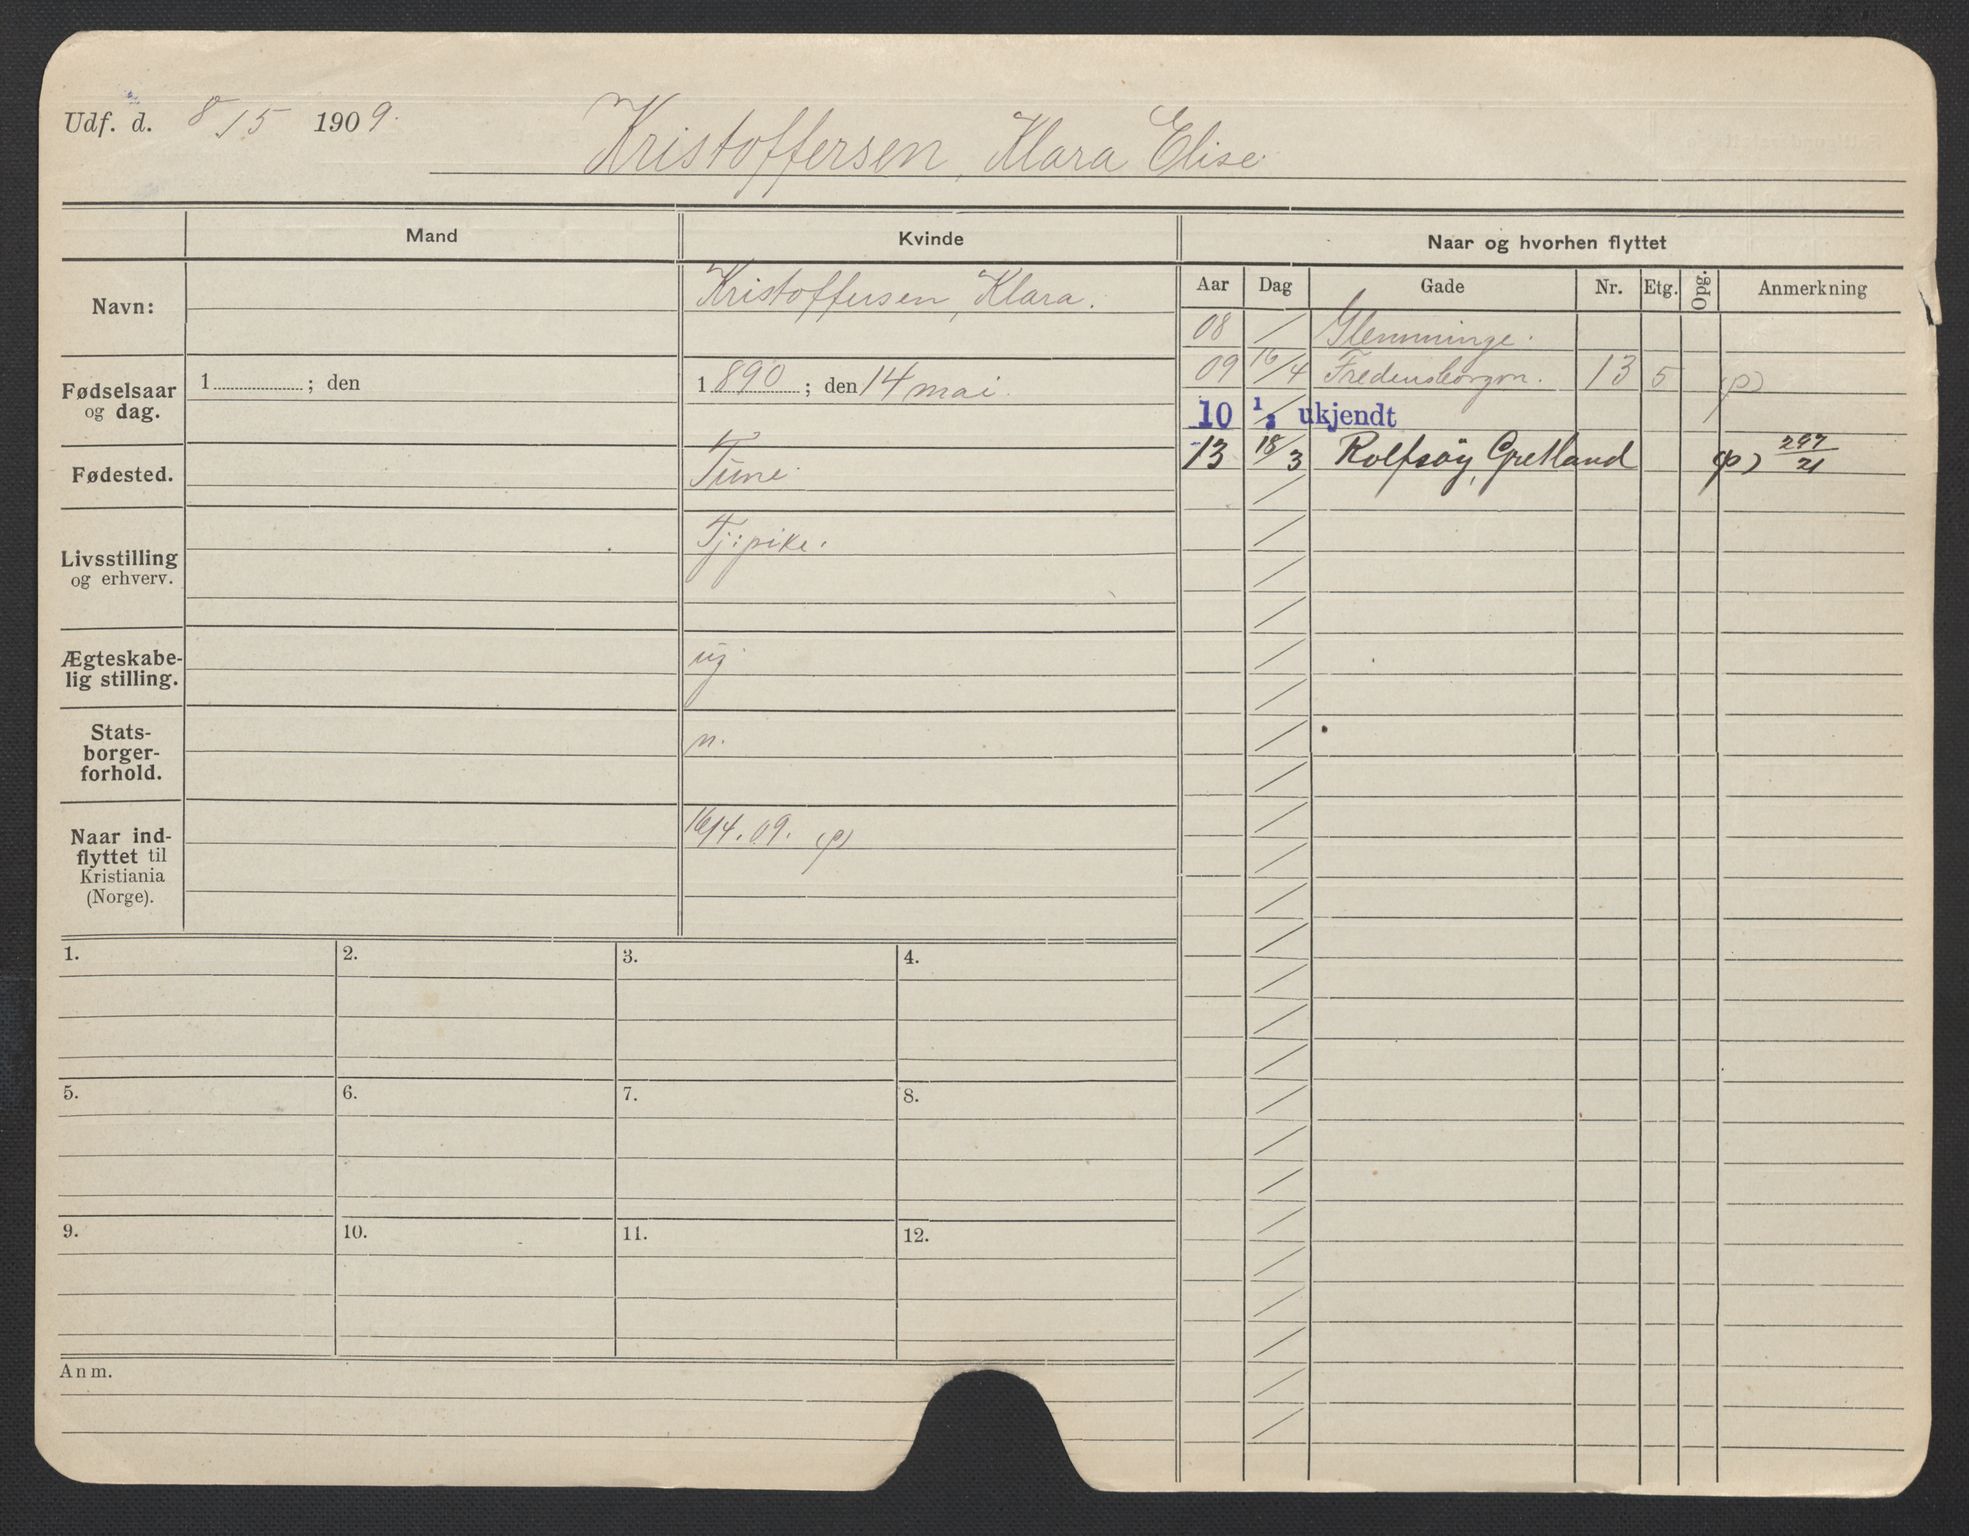 Udf. d. 8/5 1909.
Kristoffersen, Klara Elise.
Mand
Kvinde
Naar og hvorhen flyttet
Aar Dag Gade Nr. Etg. Opg. Anmerkning
Navn:
Kristoffersen, Klara.
Fødselsaar
og dag.
1 ; den
1890 ; den 14 mai.
Fødested.
Tune.
Livsstilling
og erhverv.
Tj: pike.
Ægteskabe-
lig stilling.
ug
Stats-
borger-
forhold.
n.
Naar ind-
flyttet til
Kristiania
(Norge).
16/4. 09. (p)
08 / Glemminge.
09 16/4 Fredensborgvn. 13 5 (p)
10 1/2 ukjendt
13 18/3 Rolfsøy, Gretland (p) 297/21
1. 2. 3. 4.
5. 6. 7. 8.
9. 10. 11. 12.
Anm.